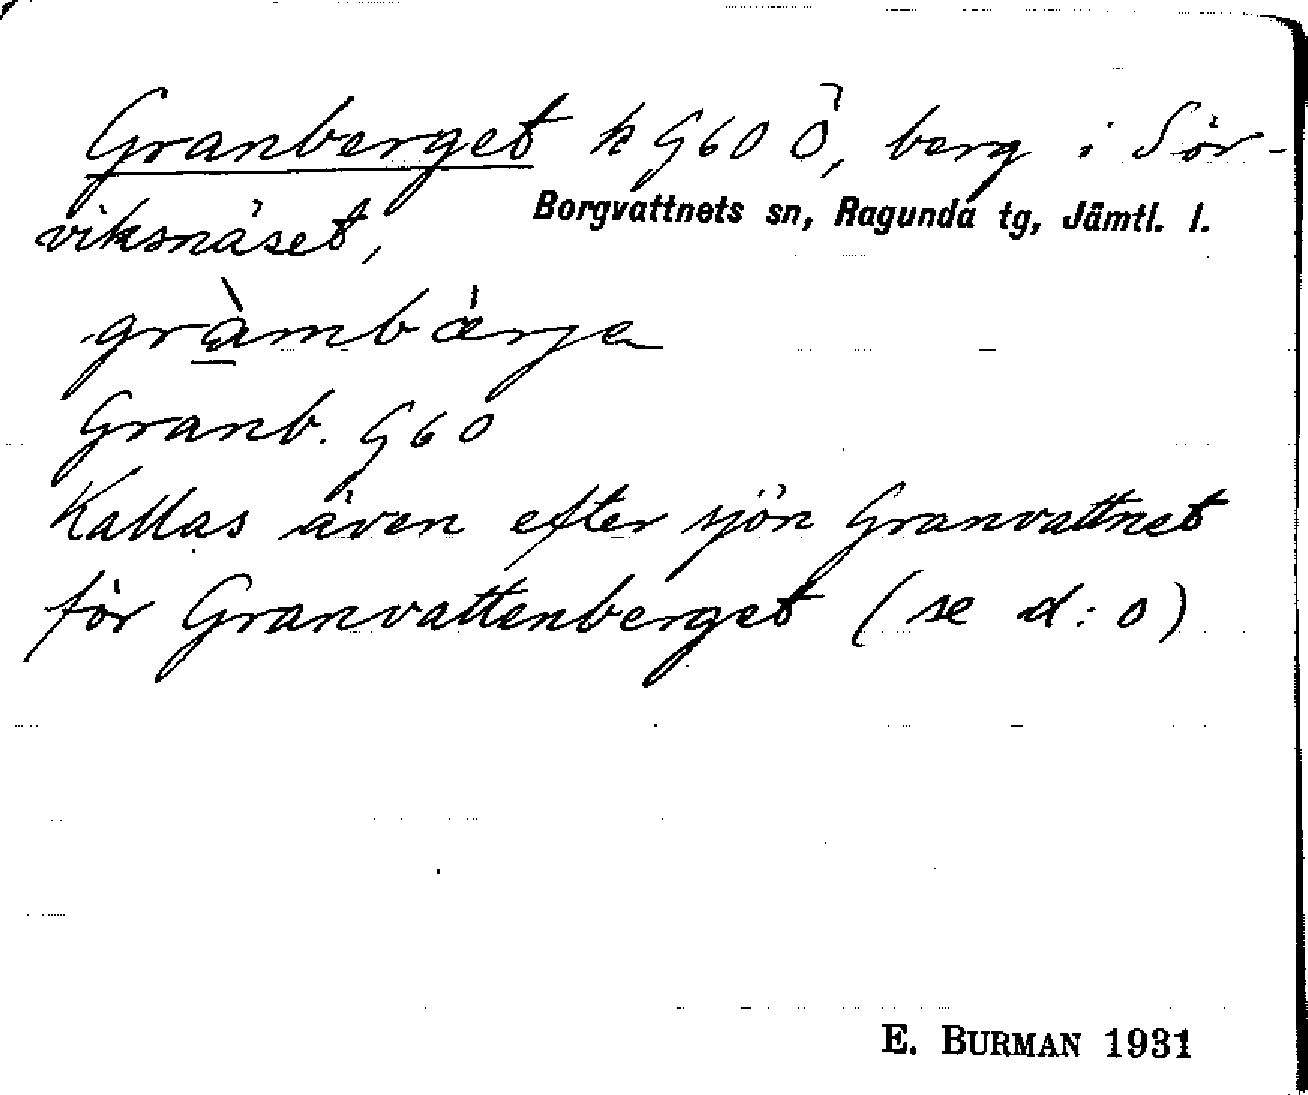 Granberget k G60 Ö, berg i Sör-
Borgvattnets sn, Ragunda tg, Jämtl. l.
viksnäset,
gràmbärje
Granb. G60
Kallas även efter sjön Granvattnet
för Granvattenberget (se d:o)
E. BURMAN 1931